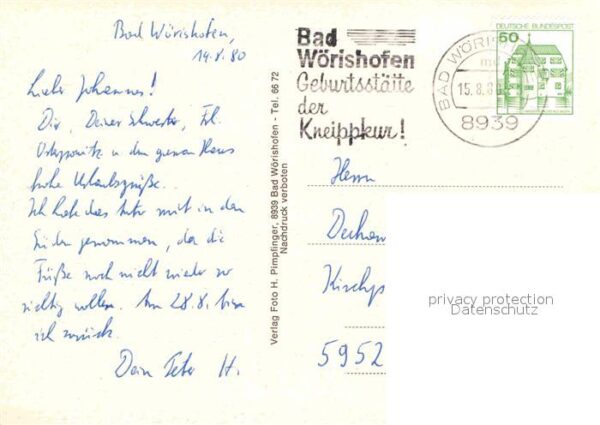 Bad Wörishofen,
14.8.80
Lieber Johannes!
Dir, Deiner Schwester, Frl.
u. dem ganzen Haus
frohe Urlaubsgrüße.
Ich habe das Auto mit in den
Süden genommen, da die
Füße noch nicht wieder so
richtig wollen. Am 28.8. bin
ich zurück.
Dein Peter H.
Verlag Foto H. Pimpfinger, 8939 Bad Wörishofen - Tel. 66 72
Nachdruck verboten
Bad
Wörishofen
Geburtsstätte
der
Kneippkur!
BAD WÖRI
15.8.8
8939
DEUTSCHE BUNDESPOST
50
Herrn
Dechan
Kirchp
5952
privacy protection
Datenschutz